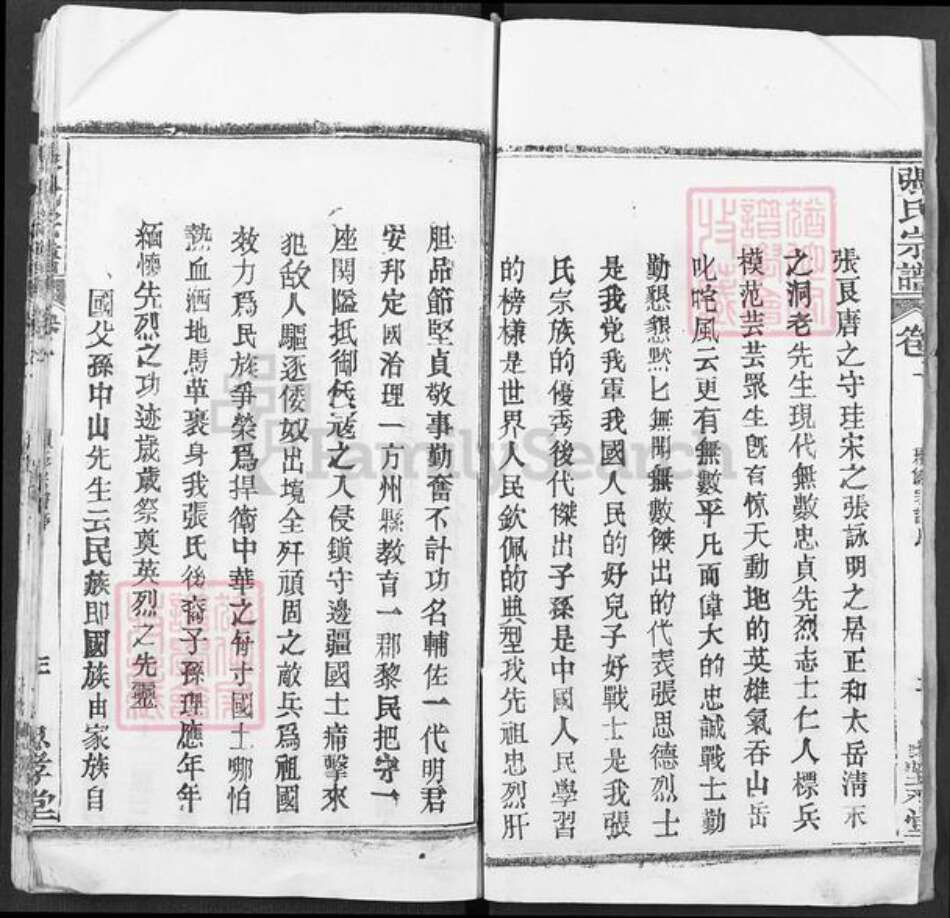 張氏宗譜
卷一
張良唐之守珪宋之張詠明之居正和太岳清末
之洞老先生現代無數忠貞先烈志士仁人標兵
模范芸芸眾生既有惊天動地的英雄氣吞山岳
叱咤風云更有無數平凡而偉大的忠誠戰士勤
勤懇懇默匕無聞無數傑出的代表張思德烈士
是我党我軍我國人民的好兒子好戰士是我張
氏宗族的優秀後代傑出子孫是中國人民學習
的榜樣是世界人民欽佩的典型我先祖忠烈肝
胆品節堅貞敬事勤奮不計功名輔佐一代明君
安邦定國治理一方州縣教育一郡黎民把守一
座関隘抵御代寇之入侵鎮守邊疆國土痛擊來
犯敌人驅逐倭奴出境全歼頑固之敵兵爲祖國
効力爲民族爭榮爲捍衛中華之每寸國土哪怕
熱血洒地馬革裹身我張氏後裔子孫理應年年
緬懷先烈之功迹歲歲祭奠英烈之先靈
國父孫中山先生云民族即國族由家族自
三
思孝堂
FamilySearch